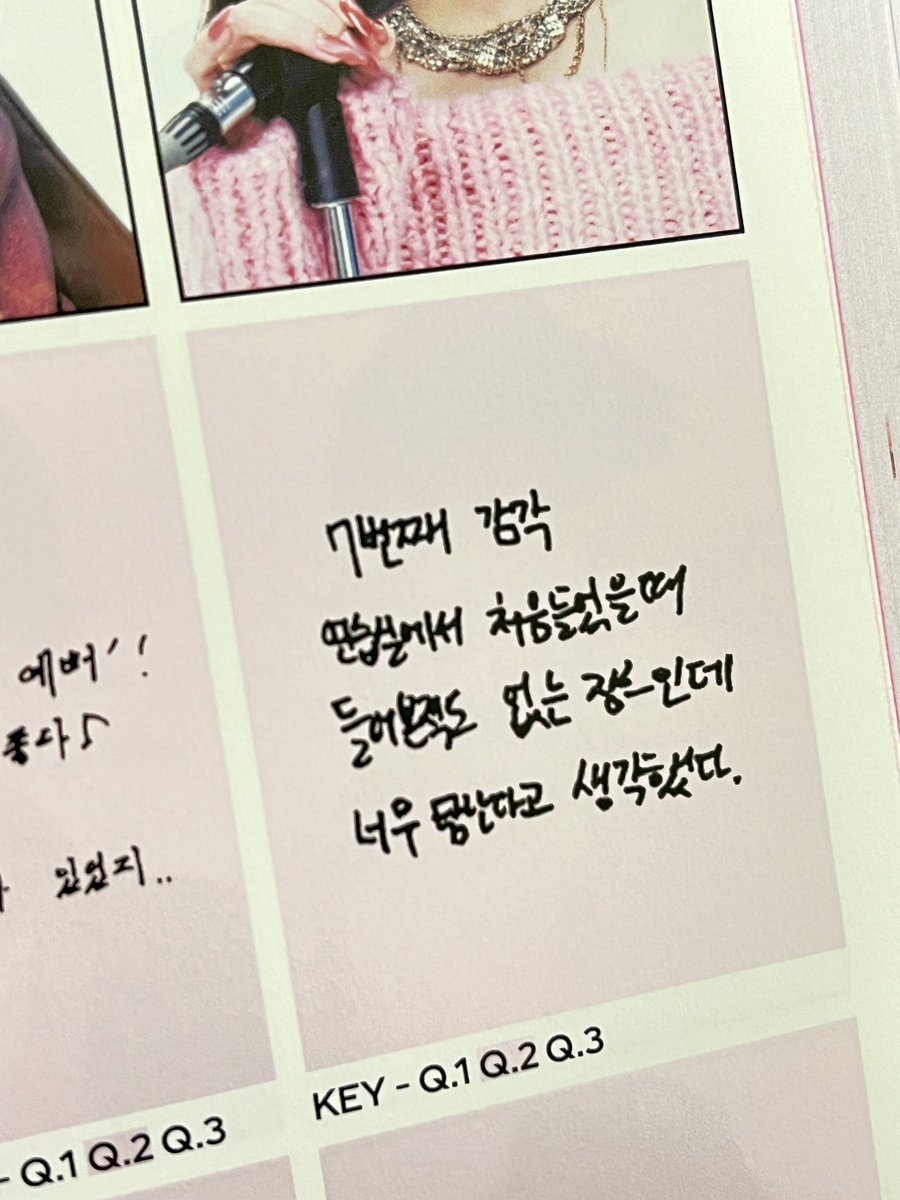 예뻐!!
좋다♪
있었지..
- Q.1 Q.2 Q.3
7번째 감각
연습실에서 처음들었을때
들어본적도 없는 장르인데
너무 멋난다고 생각했다.
KEY - Q.1 Q.2 Q.3